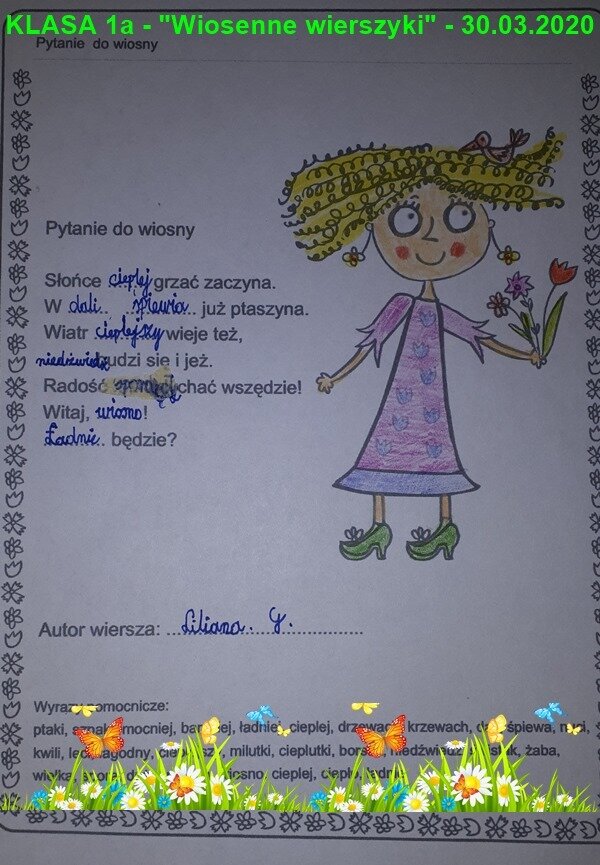 KLASA 1a - "Wiosenne wierszyki" - 30.03.2020
Pytanie do wiosny
Pytanie do wiosny
Słońce cieplej grzać zaczyna.
W dali.. ..śpiewa.. już ptaszyna.
Wiatr cieplejszy wieje też,
niedźwiedź budzi się i jeż.
Radość słychać wszędzie!
Witaj, wiosno!
Ładnie.. będzie?
Autor wiersza: ...Liliana. G. ...
Wyrazy pomocnicze:
ptaki, mocniej, ładniej, cieplej, drzewach, krzewach, śpiewa, nuci,
kwili, milutki, cieplutki, żaba,
cieplej, ciepło,